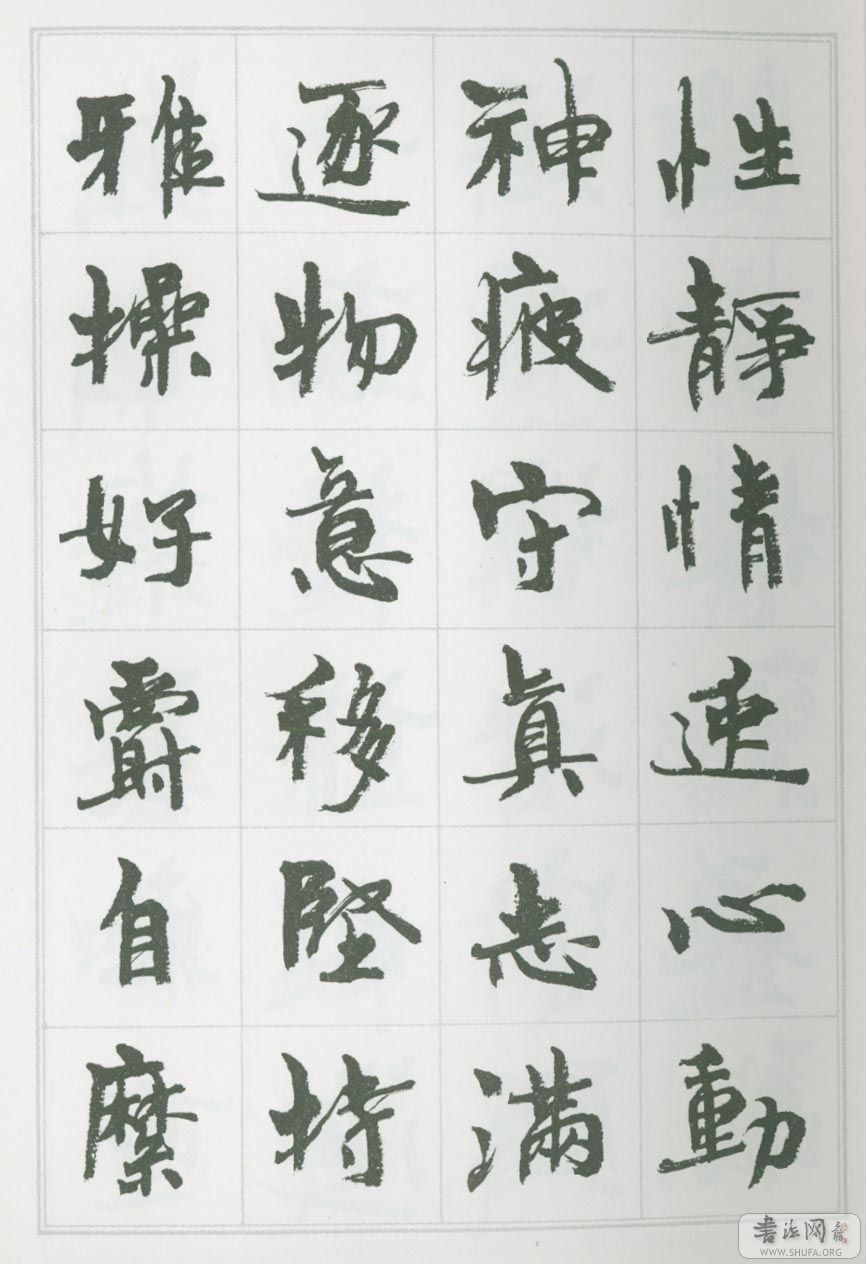 性靜情逸心動
神疲守眞志滿
逐物意移堅持
雅操好爵自縻
書法网
WWW.SHUFA.ORG